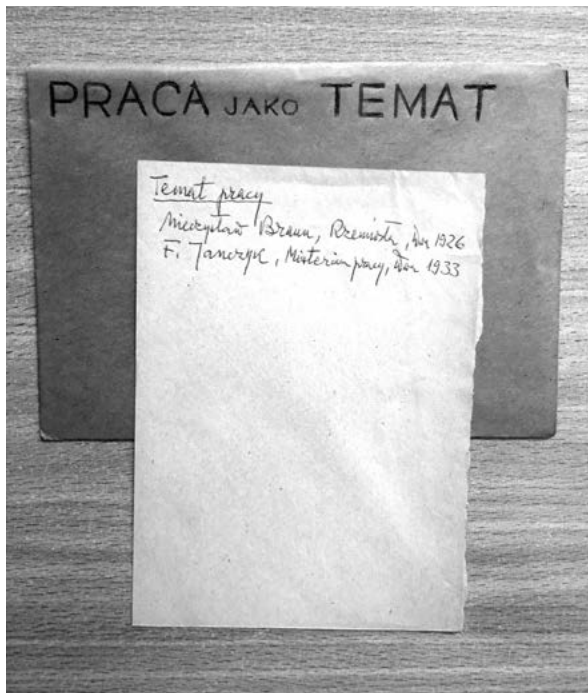 PRACA JAKO TEMAT
Temat pracy
Mieczysław Braun, Rzemiosła, 1926
F. Janczyk, Misterium pracy, 1933